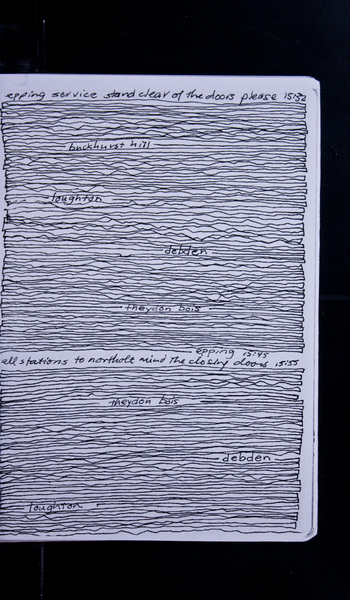 epping service stand clear of the doors please 15:32
buckhurst hill
loughton
debden
theydon bois
epping 15:45
all stations to northolt mind the closing doors 15:55
theydon bois
debden
loughton